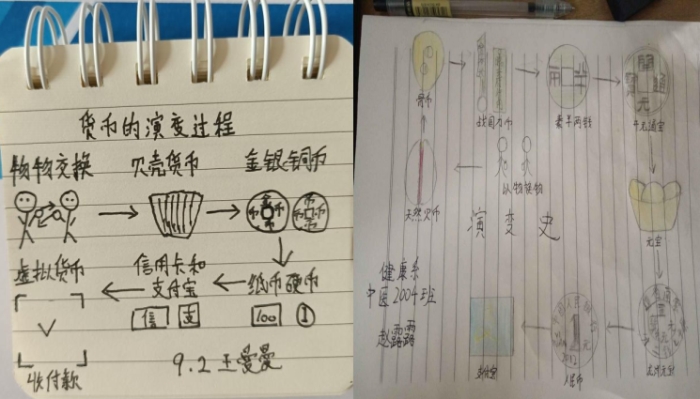 货币的演变过程
物物交换 贝壳货币 金银铜币
虚拟货币 信用卡和 纸币硬币
支付宝
信 支 100 1
收付款
9.2 王曼曼
骨币 战国刀币 秦半两钱 开元通宝
天然贝币 以物换物
元宝
演变史
健康系
中医2004班
赵露露
支付宝 人民币 光绪元宝